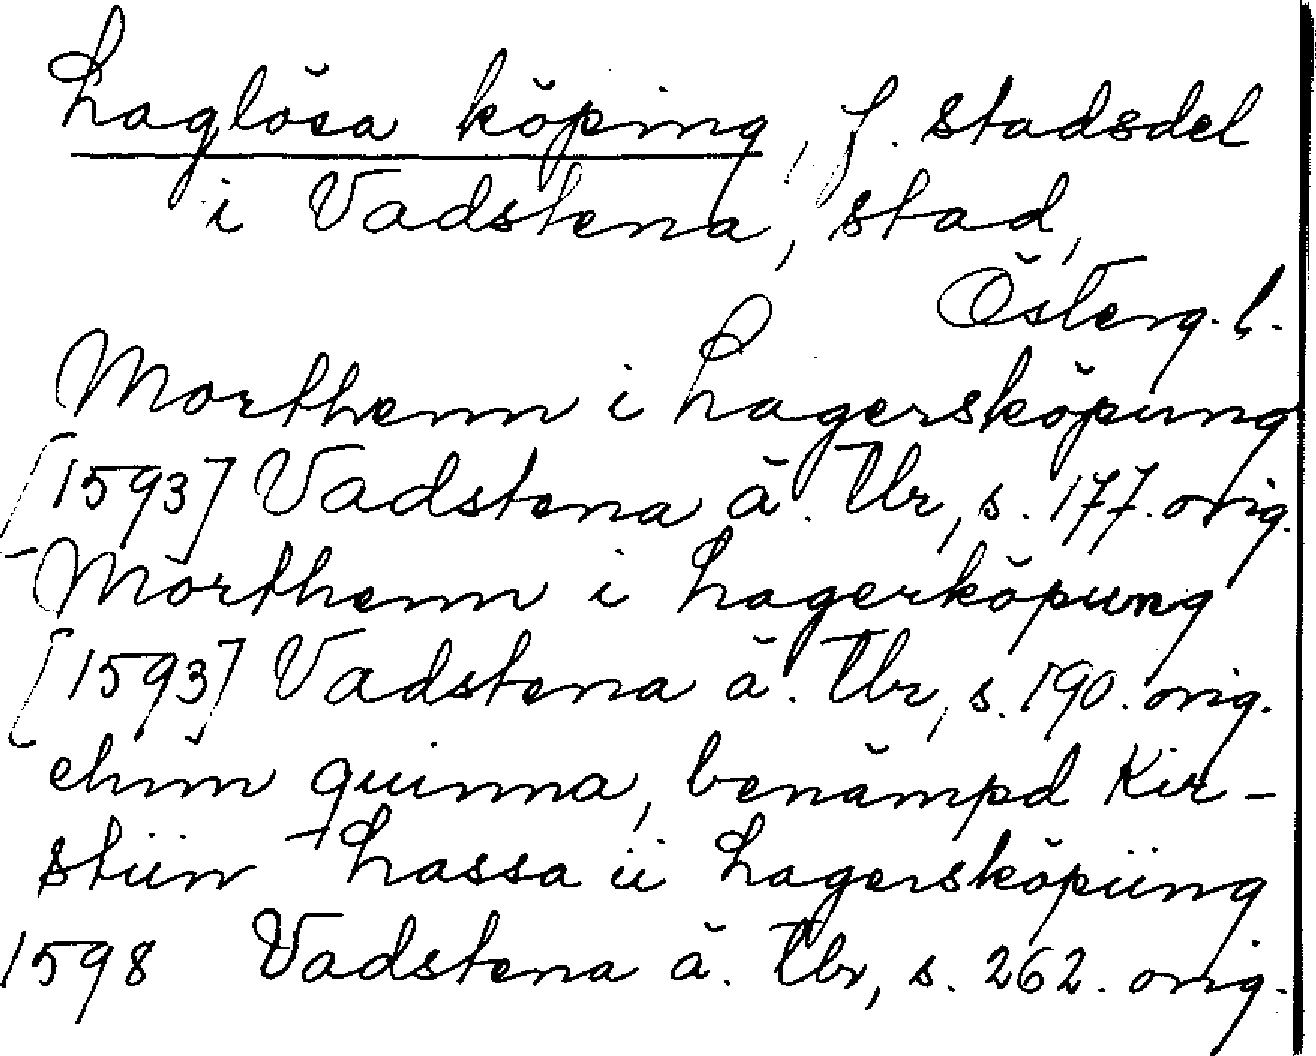 Laglösa köping, f. stadsdel
i Vadstena, stad,
Österg. l.
Morthenn i Lagersköpung
[1593] Vadstena ä. Tbr, s. 177. orig.
Morthenn i Lagerköpung
[1593] Vadstena ä. Tbr, s. 190. orig.
ehnn quinna, benämpd Kir-
stiin Lassa ii Lagersköpiing
1598 Vadstena ä. Tbr, s. 262. orig.